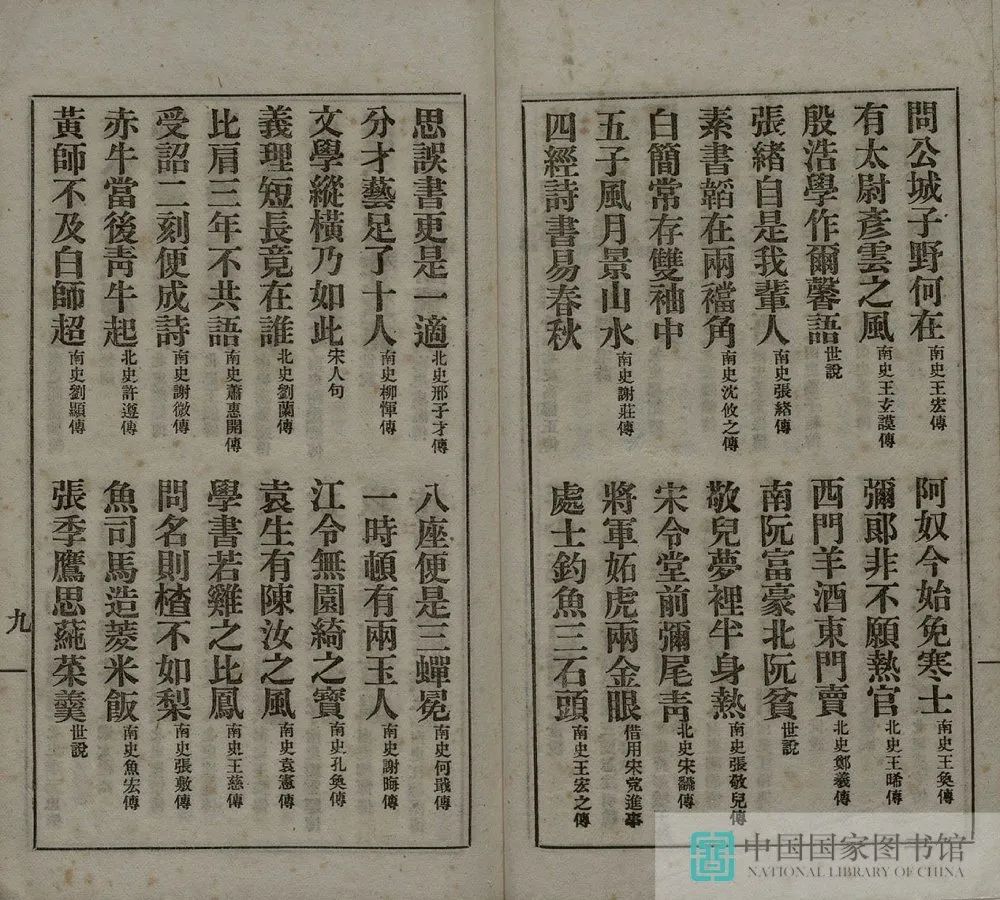 問公城子野何在 南史王宏傳 阿奴今始免寒士 南史王奐傳
有太尉彥雲之風 南史王玄謨傳 彌郞非不願熱官 北史王晞傳
殷浩學作爾馨語 世說 西門羊酒東門賣 北史鄭羲傳
張緒自是我輩人 南史張緒傳 南阮富豪北阮貧 世說
素書韜在兩襠角 南史沈攸之傳 敬兒夢裡半身熱 南史張敬兒傳
白簡常存雙袖中 宋令堂前彌尾靑 北史宋翻傳
五子風月景山水 南史謝莊傳 將軍妬虎兩金眼 借用宋党進事
四經詩書易春秋 處士釣魚三石頭 南史王宏之傳
思誤書更是一適 北史邢子才傳 八座便是三蟬冕 南史何戢傳
分才藝足了十人 南史柳惲傳 一時頓有兩玉人 南史謝晦傳
文學縱橫乃如此 宋人句 江令無園綺之實 南史孔奐傳
義理短長竟在誰 北史劉蘭傳 袁生有陳汝之風 南史袁憲傳
比肩三年不共語 南史蕭惠開傳 學書若雞之比鳳 南史王慈傳
受詔二刻便成詩 南史謝微傳 問名則楂不如梨 南史張敷傳
赤牛當後靑牛起 北史許遵傳 魚司馬造菱米飯 南史魚宏傳
黃師不及白師超 南史劉顯傳 張季鷹思蒓菜羹 世說
九
中国国家图书馆
NATIONAL LIBRARY OF CHINA